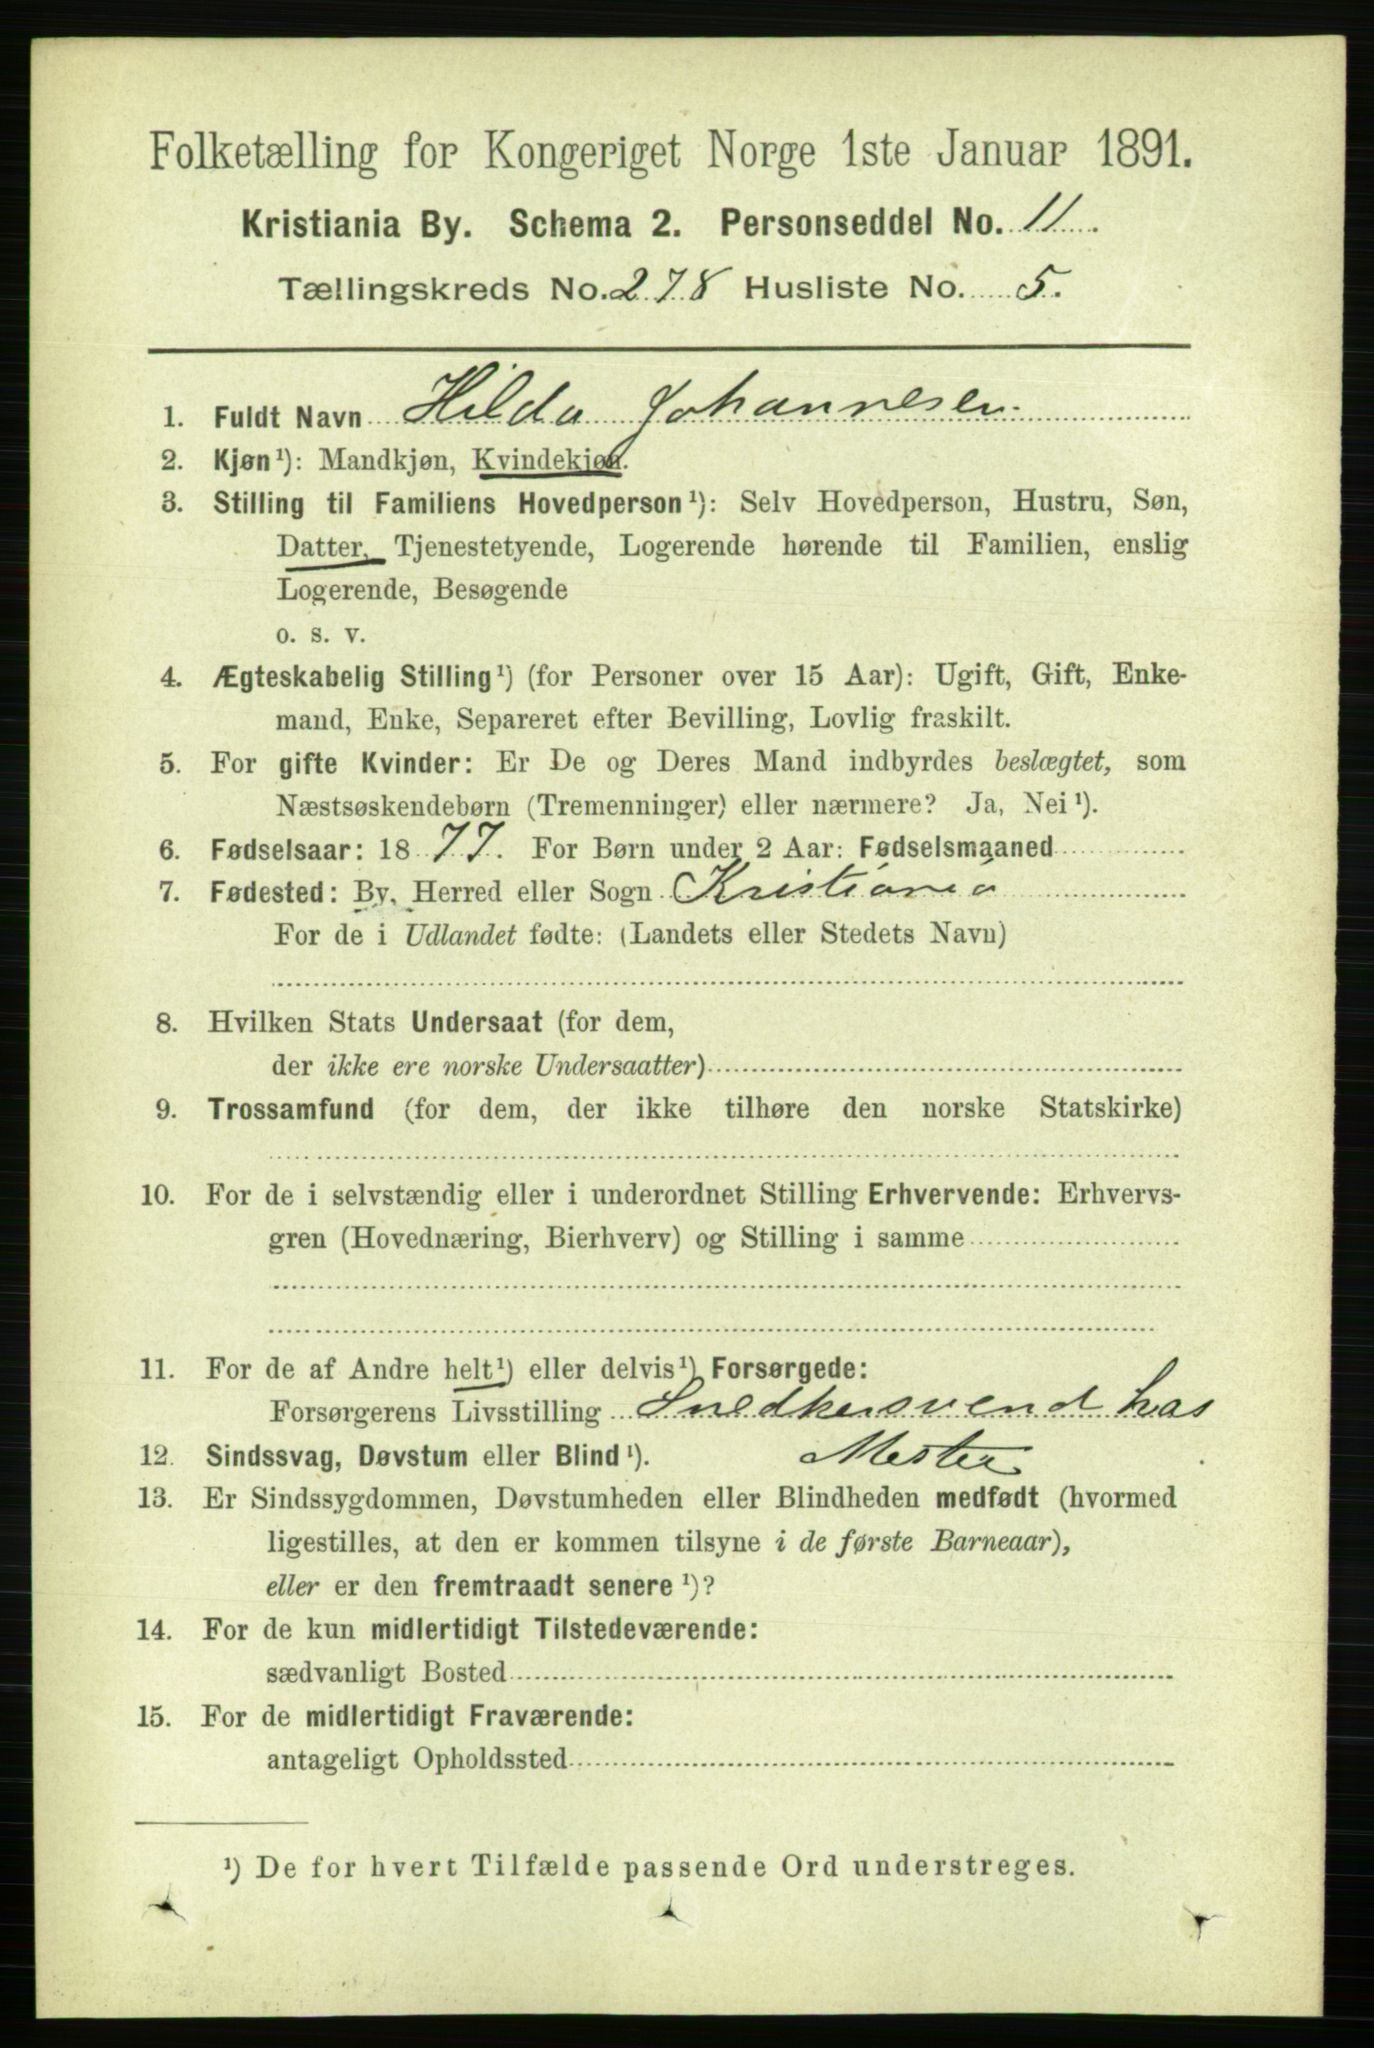 Folketælling for Kongeriget Norge 1ste Januar 1891.
Kristiania By. Schema 2. Personseddel No. 11.
Tællingskreds No. 278 Husliste No. 5.
1. Fuldt Navn Hilda Johannesen.
2. Kjøn¹): Mandkjøn, Kvindekjøn.
3. Stilling til Familiens Hovedperson¹): Selv Hovedperson, Hustru, Søn,
Datter, Tjenestetyende, Logerende hørende til Familien, enslig
Logerende, Besøgende
o. s. v.
4. Ægteskabelig Stilling¹) (for Personer over 15 Aar): Ugift, Gift, Enke-
mand, Enke, Separeret efter Bevilling, Lovlig fraskilt.
5. For gifte Kvinder: Er De og Deres Mand indbyrdes beslægtet, som
Næstsøskendebørn (Tremenninger) eller nærmere? Ja, Nei¹).
6. Fødselsaar: 1877. For Børn under 2 Aar: Fødselsmaaned
7. Fødested: By, Herred eller Sogn Kristiania
For de i Udlandet fødte: (Landets eller Stedets Navn)
8. Hvilken Stats Undersaat (for dem,
der ikke ere norske Undersaatter)
9. Trossamfund (for dem, der ikke tilhøre den norske Statskirke)
10. For de i selvstændig eller i underordnet Stilling Erhvervende: Erhvervs-
gren (Hovednæring, Bierhverv) og Stilling i samme
11. For de af Andre helt¹) eller delvis¹) Forsørgede:
Forsørgerens Livsstilling Snedkersvend hos
12. Sindssvag, Døvstum eller Blind¹). Mester
13. Er Sindssygdommen, Døvstumheden eller Blindheden medfødt (hvormed
ligestilles, at den er kommen tilsyne i de første Barneaar),
eller er den fremtraadt senere¹)?
14. For de kun midlertidigt Tilstedeværende:
sædvanligt Bosted
15. For de midlertidigt Fraværende:
antageligt Opholdssted
¹) De for hvert Tilfælde passende Ord understreges.